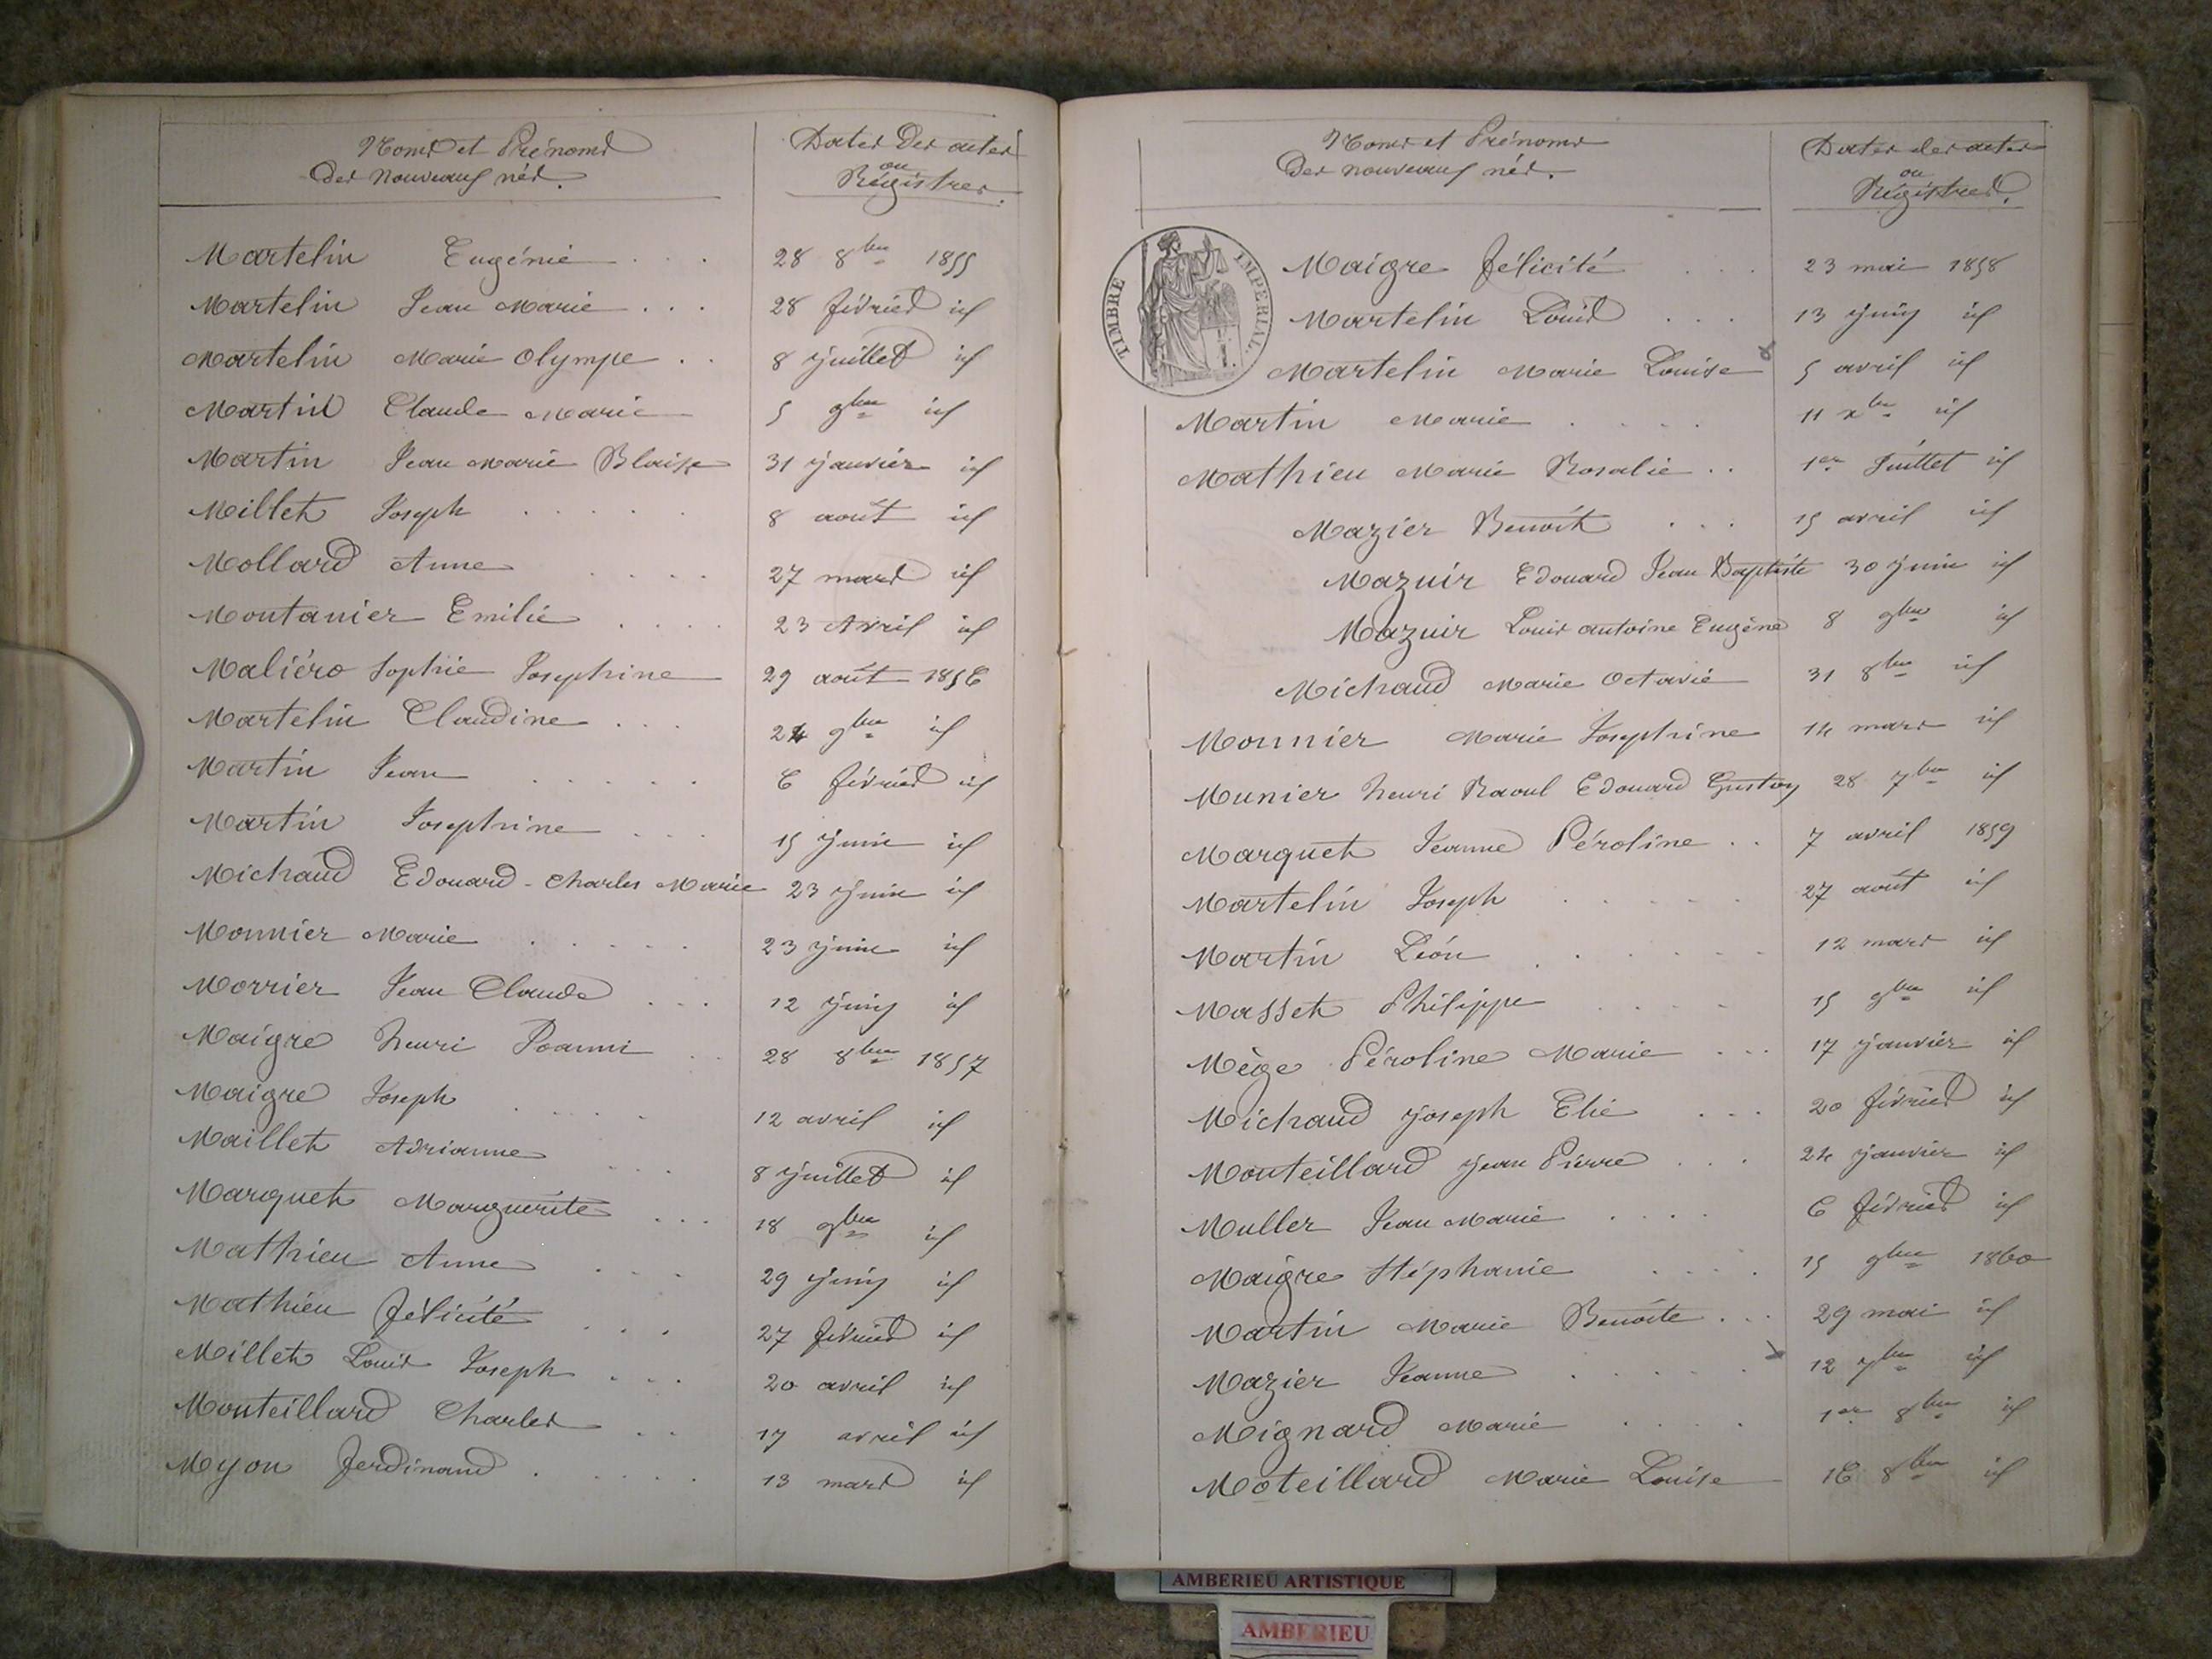 Noms et Prénoms
Des nouveaux nés.
Dates des actes
ou
Régistres.
Martelin Eugénie . . . 28 8bre 1855
Martelin Jean Marie . . . 28 février id
Martelin Marie Olympe . . 8 juillet id
Martin Claude Marie 5 9bre id
Martin Jean Marie Blaise 31 janvier id
Millet Joseph . . . . . 8 août id
Mollard Anne . . . . 27 mars id
Montanier Emilie . . . . 23 Avril id
Maliéro Sophie Josephine 29 août 1856
Martelin Claudine . . . 24 9bre id
Martin Jean . . . . . 6 février id
Martin Josephine . . . 15 juin id
Michaud Edouard - Charles Marie 23 juin id
Monnier Marie . . . . . 23 juin id
Morrier Jean Claude . . . 12 juin id
Maigre henri Joanni . . 28 8bre 1857
Maigre Joseph . . . . 12 avril id
Maillet Adrianne . . . 8 juillet id
Marquet Marguerite . . . 18 9bre id
Mathieu Anne . . . 29 juin id
Mathieu félicité . . . 27 février id
Millet Louis Joseph . . . 20 avril id
Monteillard Charles . . 17 avril id
Myon ferdinand . . . . . 13 mars id
Noms et Prénoms
Des nouveaux nés.
Dates des actes
ou
Régistres.
TIMBRE IMPERIAL.
Maigre félicité . . . 23 mai 1858
Martelin Louis . . . 13 juin id
Martelin Marie Louise 5 avril id
Martin Marie . . . . 11 xbre id
Mathieu Marie Rosalie . . 1er Juillet id
Mazier Benoit . . . 15 avril id
Mazuir Edouard Jean Baptiste 30 juin id
Mazuir Louis antoine Eugène 8 9bre id
Michaud Marie Octavie 31 8bre id
Monnier Marie Josephine 14 mars id
Munier henri Raoul Edouard Gustav 28 7bre id
Marquet Jeanne Péroline . . 7 avril 1859
Martelin Joseph . . . . . 27 août id
Martin Léon . . . . . . 12 mars id
Masset Philippe . . . . 15 9bre id
Mège Péroline Marie . . . 17 janvier id
Michaud joseph Elie . . . 20 février id
Monteillard jean Pierre . . . 24 janvier id
Muller Jean Marie . . . . 6 février id
Maigre Stéphanie . . . . 15 9bre 1860
Martin Marie Benoite . . . 29 mai id
Mazier Jeanne . . . . . 12 7bre id
Mignard Marie . . . . 1er 8bre id
Moteillard Marie Louise 16 8bre id
AMBERIEU ARTISTIQUE
AMBERIEU